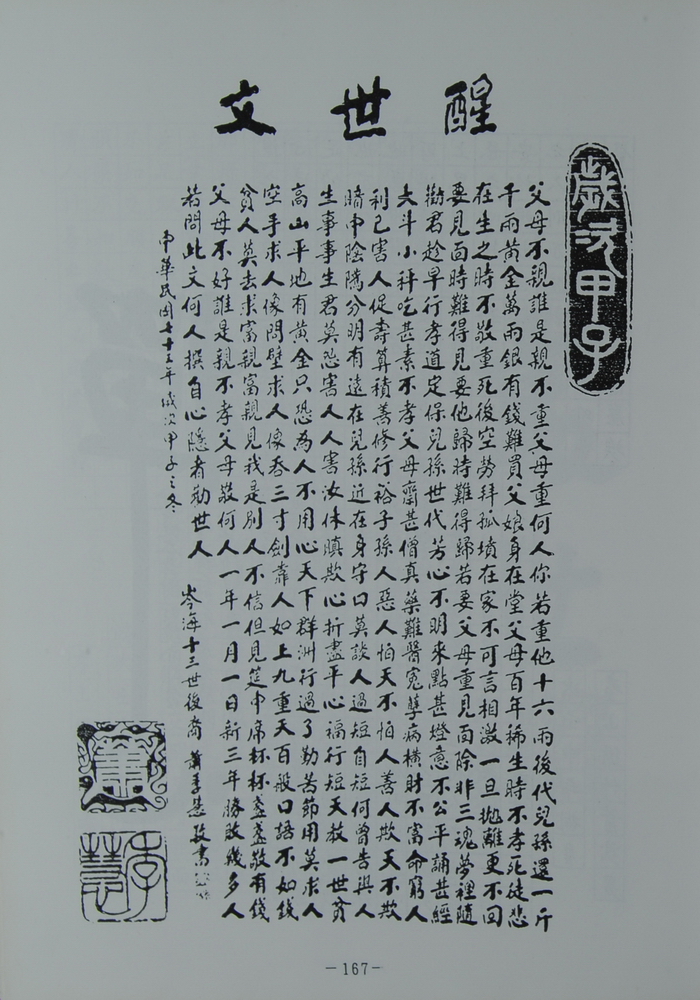 醒世文
歲次甲子
父母不親誰是親不重父母重何人你若重他十六兩後代兒孫還一斤
千兩黃金萬兩銀有錢難買父娘身在堂父母百年稀生時不孝死徒悲
在生之時不敬重死後空勞拜孤墳在家不可言相激一旦拋離更不回
要見面時難得見要他歸時難得歸若要父母重見面除非三魂夢裡隨
勸君趁早行孝道定保兒孫世代芳心不明來點甚燈意不公平誦甚經
大斗小秤吃甚素不孝父母齋甚僧真藥難醫冤孽病橫財不富命窮人
利己害人促壽算積善修行裕子孫人惡人怕天不怕人善人欺天不欺
暗中陰隲分明有遠在兒孫近在身守口莫談人過短自短何曾告與人
生事事生君莫怨害人人害汝休瞋欺心折盡平心福行短天教一世貧
高山平地有黃金只恐為人不用心天下群洲行過了勤苦節用莫求人
空手求人像問壁求人像吞三寸劍靠人如上九重天百般口語不如錢
貧人莫去求富親富親見我是別人不信但見筵中席杯杯盞盞敬有錢
父母不好誰是親不孝父母敬何人一年一月一日新三年勝敗幾多人
若問此文何人撰自心隱者勸世人
中華民國七十三年歲次甲子之冬
岑海十三世後裔蕭季慧敬書
蕭
季慧
-167-